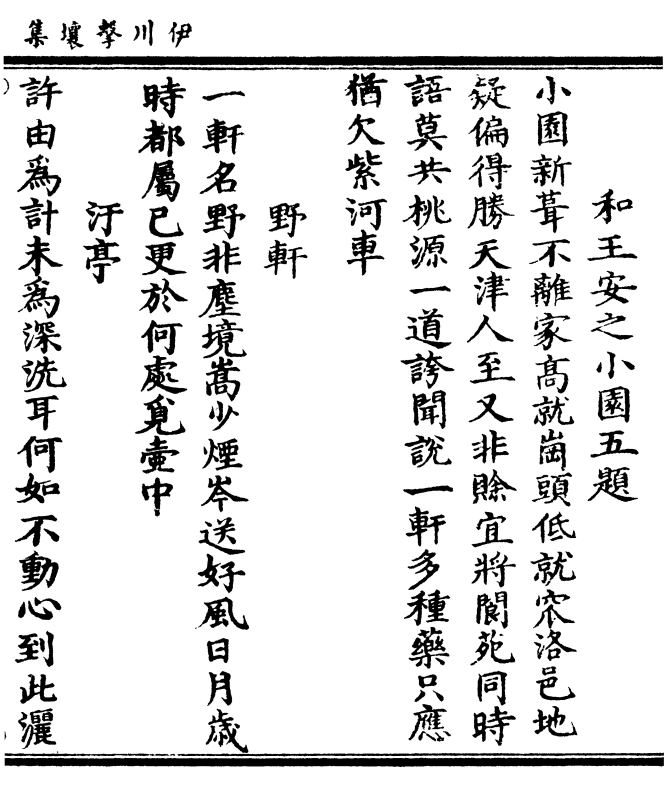 伊川擊壤集
和王安之小園五題
小園新葺不離家髙就崗頭低就窊洛邑地
疑偏得勝天津人至又非賖宜將閬苑同時
語莫共桃源一道誇聞說一軒多種藥只應
猶欠紫河車
野軒
一軒名野非塵境嵩少煙岑送好風日月歲
時都屬已更於何處覓壷中
汙亭
許由爲計未爲深洗耳何如不動心到此灑